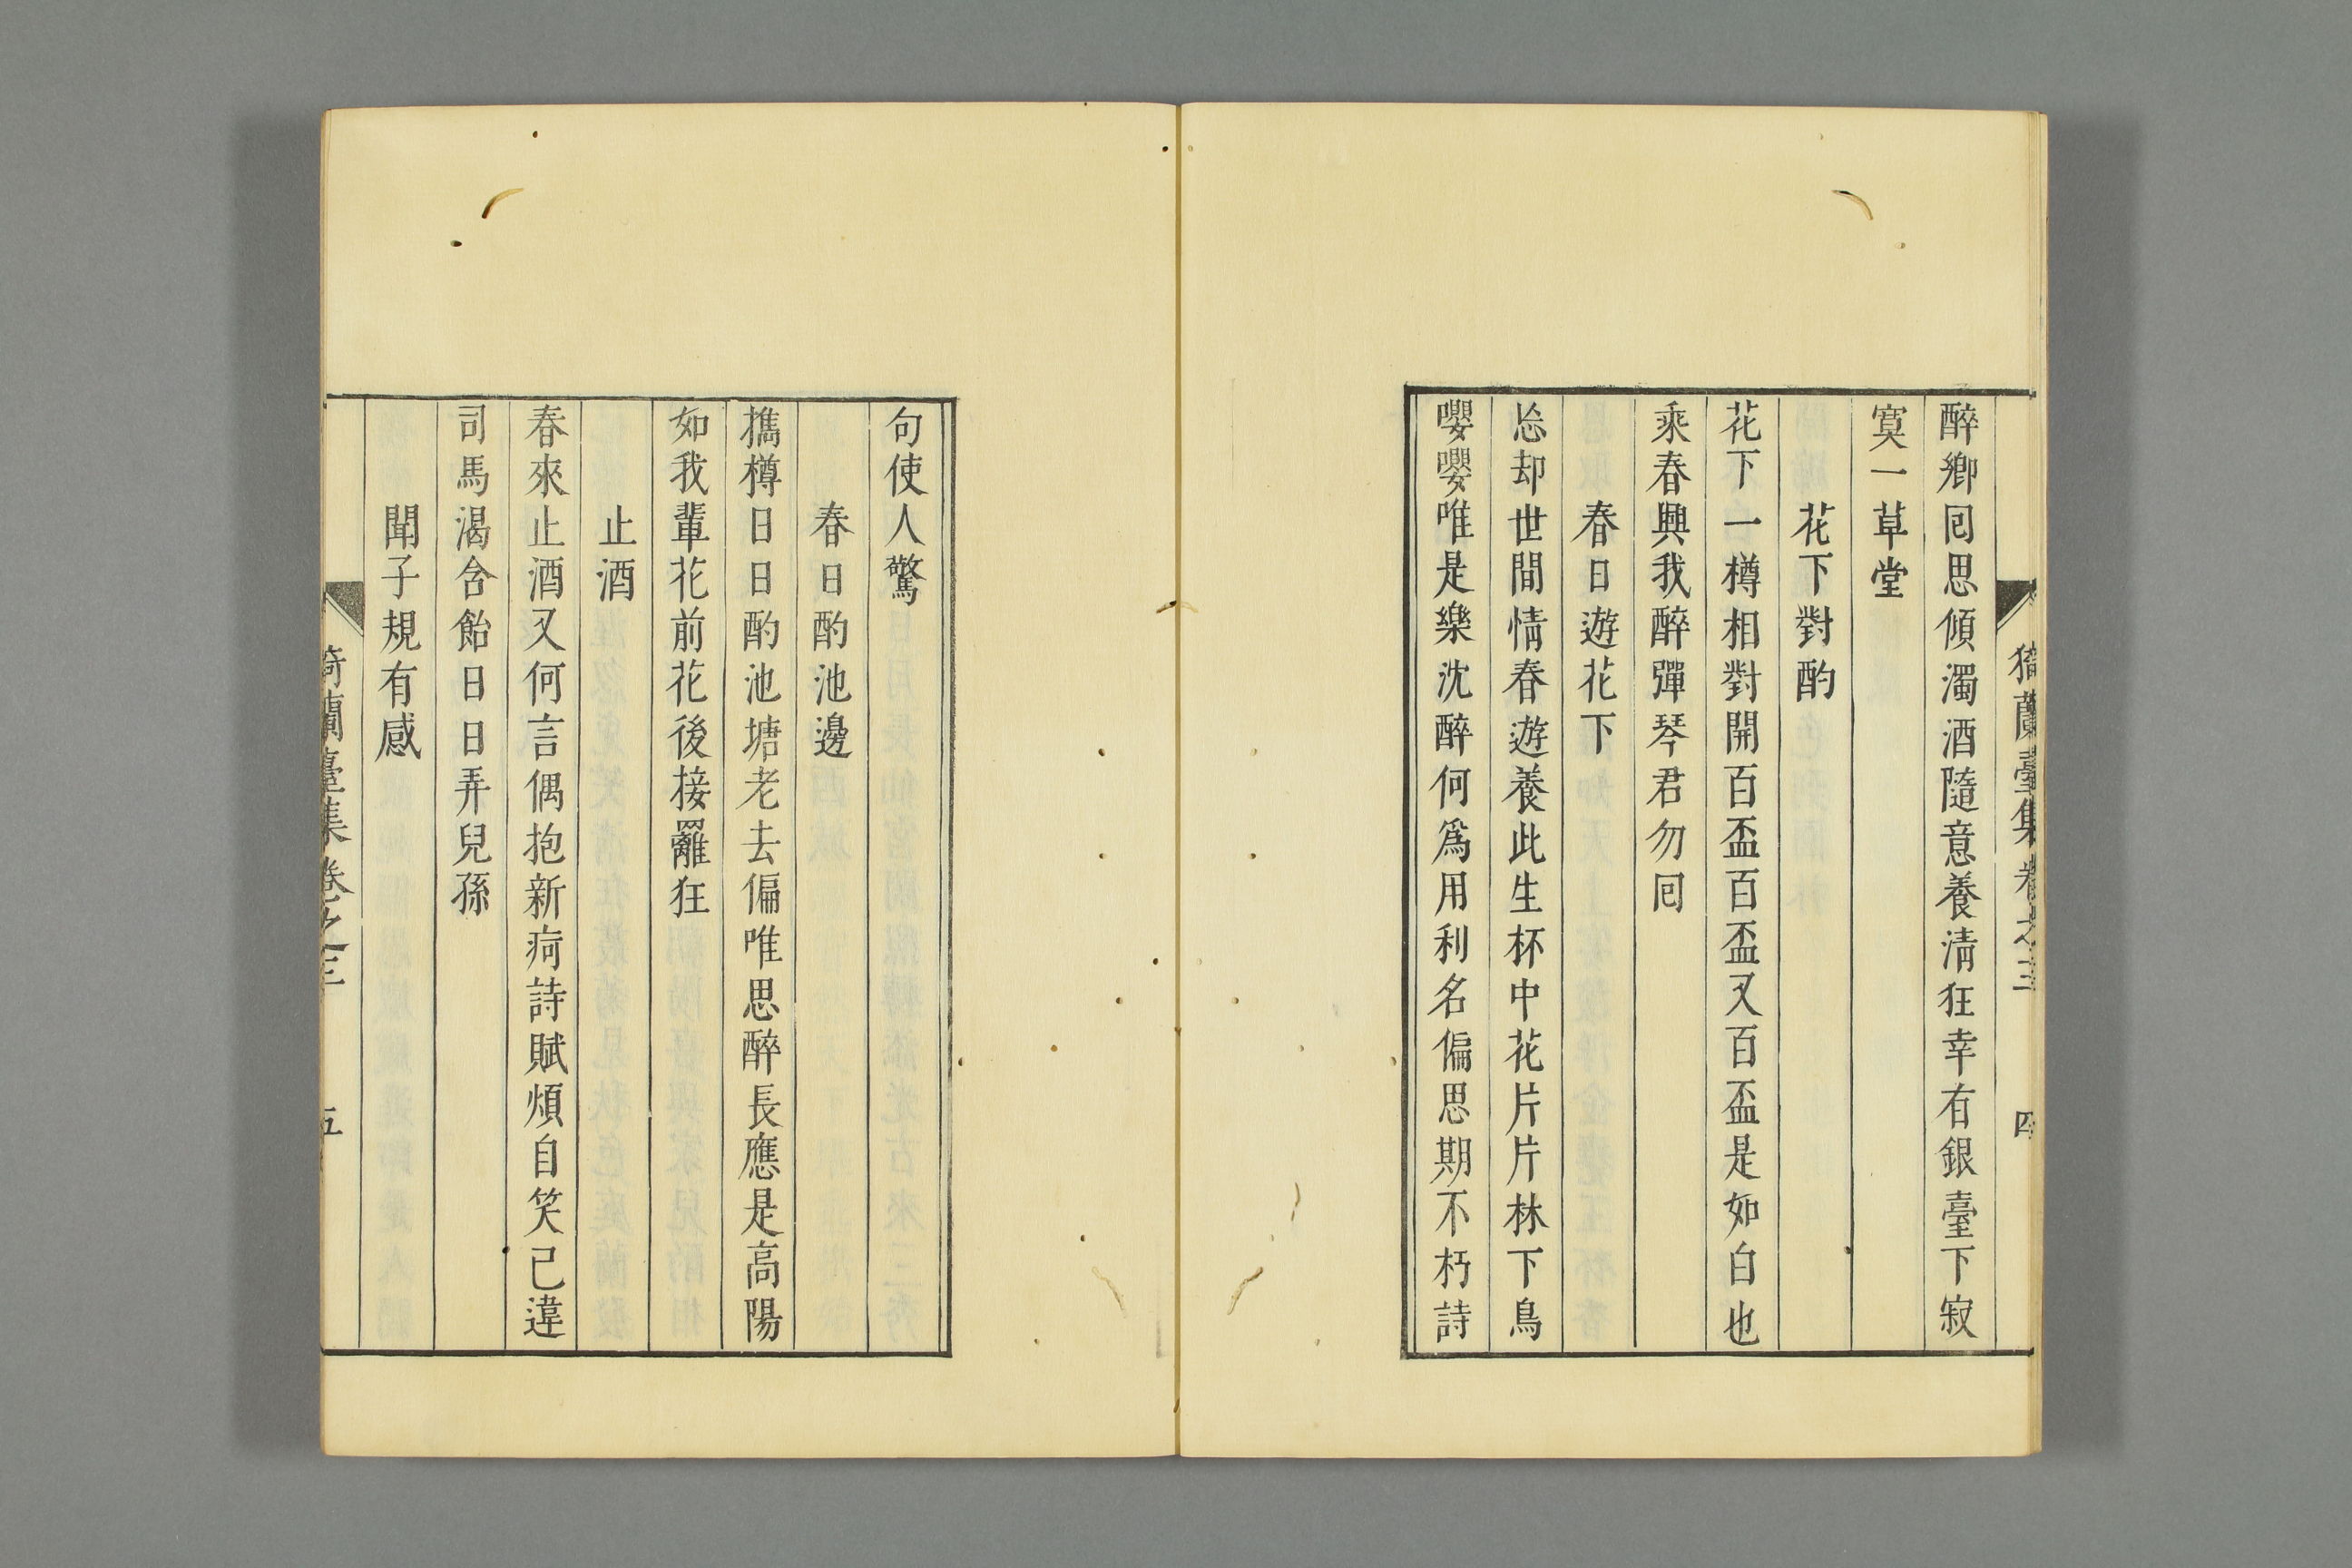 猗蘭臺集 卷之三 四
醉鄉囘思傾濁酒隨意養淸狂幸有銀臺下寂
寞一草堂
花下對酌
花下一樽相對開百盃百盃又百盃是如白也
乘春興我醉彈琴君勿囘
春日遊花下
忩却世間情春遊養此生杯中花片片林下鳥
嚶嚶唯是樂沈醉何爲用利名偏思期不朽詩
句使人驚
春日酌池邊
攜樽日日酌池塘老去偏唯思醉長應是高陽
如我輩花前花後接䍦狂
止酒
春來止酒又何言偶抱新痾詩賦煩自笑已違
司馬渴含飴日日弄兒孫
聞子規有感
猗蘭臺集 卷之三 五